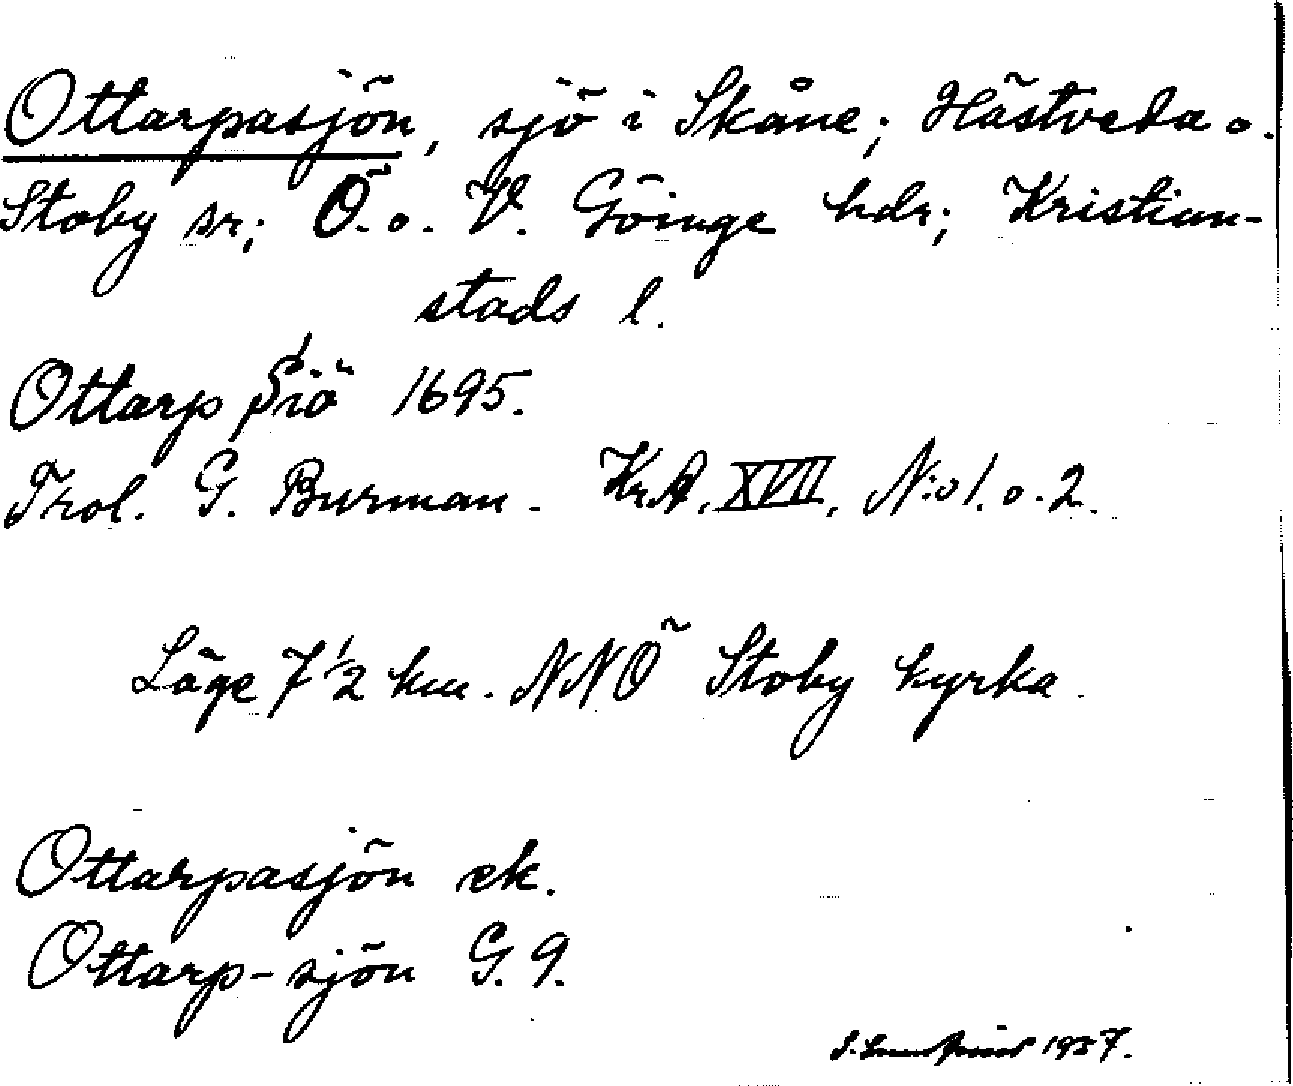 Ottarpasjön, sjö i Skåne; Hästveda o.
Stoby sr; Ö. o. V. Göinge hdr; Kristian-
stads l.
Ottarp Siö 1695.
Trol. G. Burman. Kr.A. XVII, N:o 1. o. 2.
Läge 7 1/2 km. NNÖ Stoby kyrka.
Ottarpasjön ek.
Ottarp-sjön G. 9.
1937.